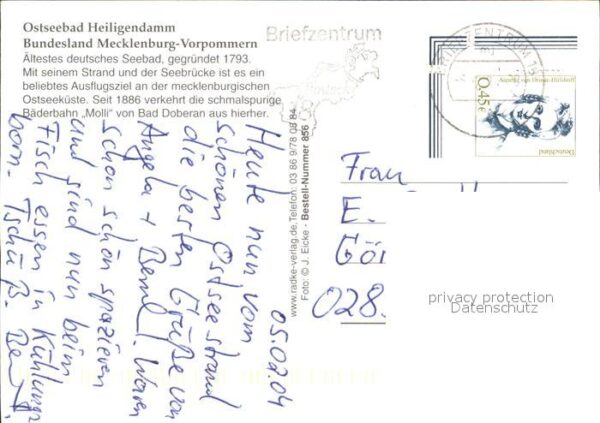 Ostseebad Heiligendamm
Bundesland Mecklenburg-Vorpommern
Ältestes deutsches Seebad, gegründet 1793.
Mit seinem Strand und der Seebrücke ist es ein
beliebtes Ausflugsziel an der mecklenburgischen
Ostseeküste. Seit 1886 verkehrt die schmalspurige
Bäderbahn „Molli" von Bad Doberan aus hierher.
Briefzentrum
BRIEFZENTRUM
0,45€
Annette von Droste-Hülshoff
Deutschland
www.radke-verlag.de, Telefon: 03 86 9/78 09 84
Foto: © J. Eicke · Bestell-Nummer 856
05.02.04
Heute nun vom
schönen Ostseestrand
die besten Grüße von
Angela + Bernd. Waren
schon schön spazieren
und sind nun beim
Fisch essen in Kühlungs-
born. Tschüß.
Frau
E.
Gör
028.
privacy protection
Datenschutz